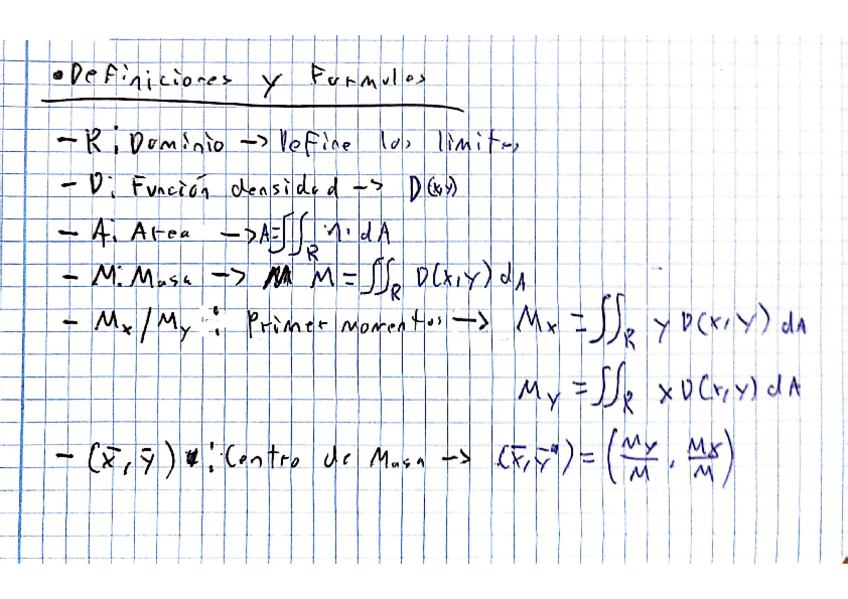 • Definiciones y Formulas
- R: Dominio -> Define los limites
- D: Función densidad -> D(x,y)
- A: Area -> A=∬_R 1·dA
- M: Masa -> M = ∬_R D(x,y) dA
- Mx/My : Primer momentos -> Mx = ∬_R y D(x,y) dA
My = ∬_R x D(x,y) dA
- (x̄, ȳ) : Centro de Masa -> (x̄, ȳ) = (My/M , Mx/M)